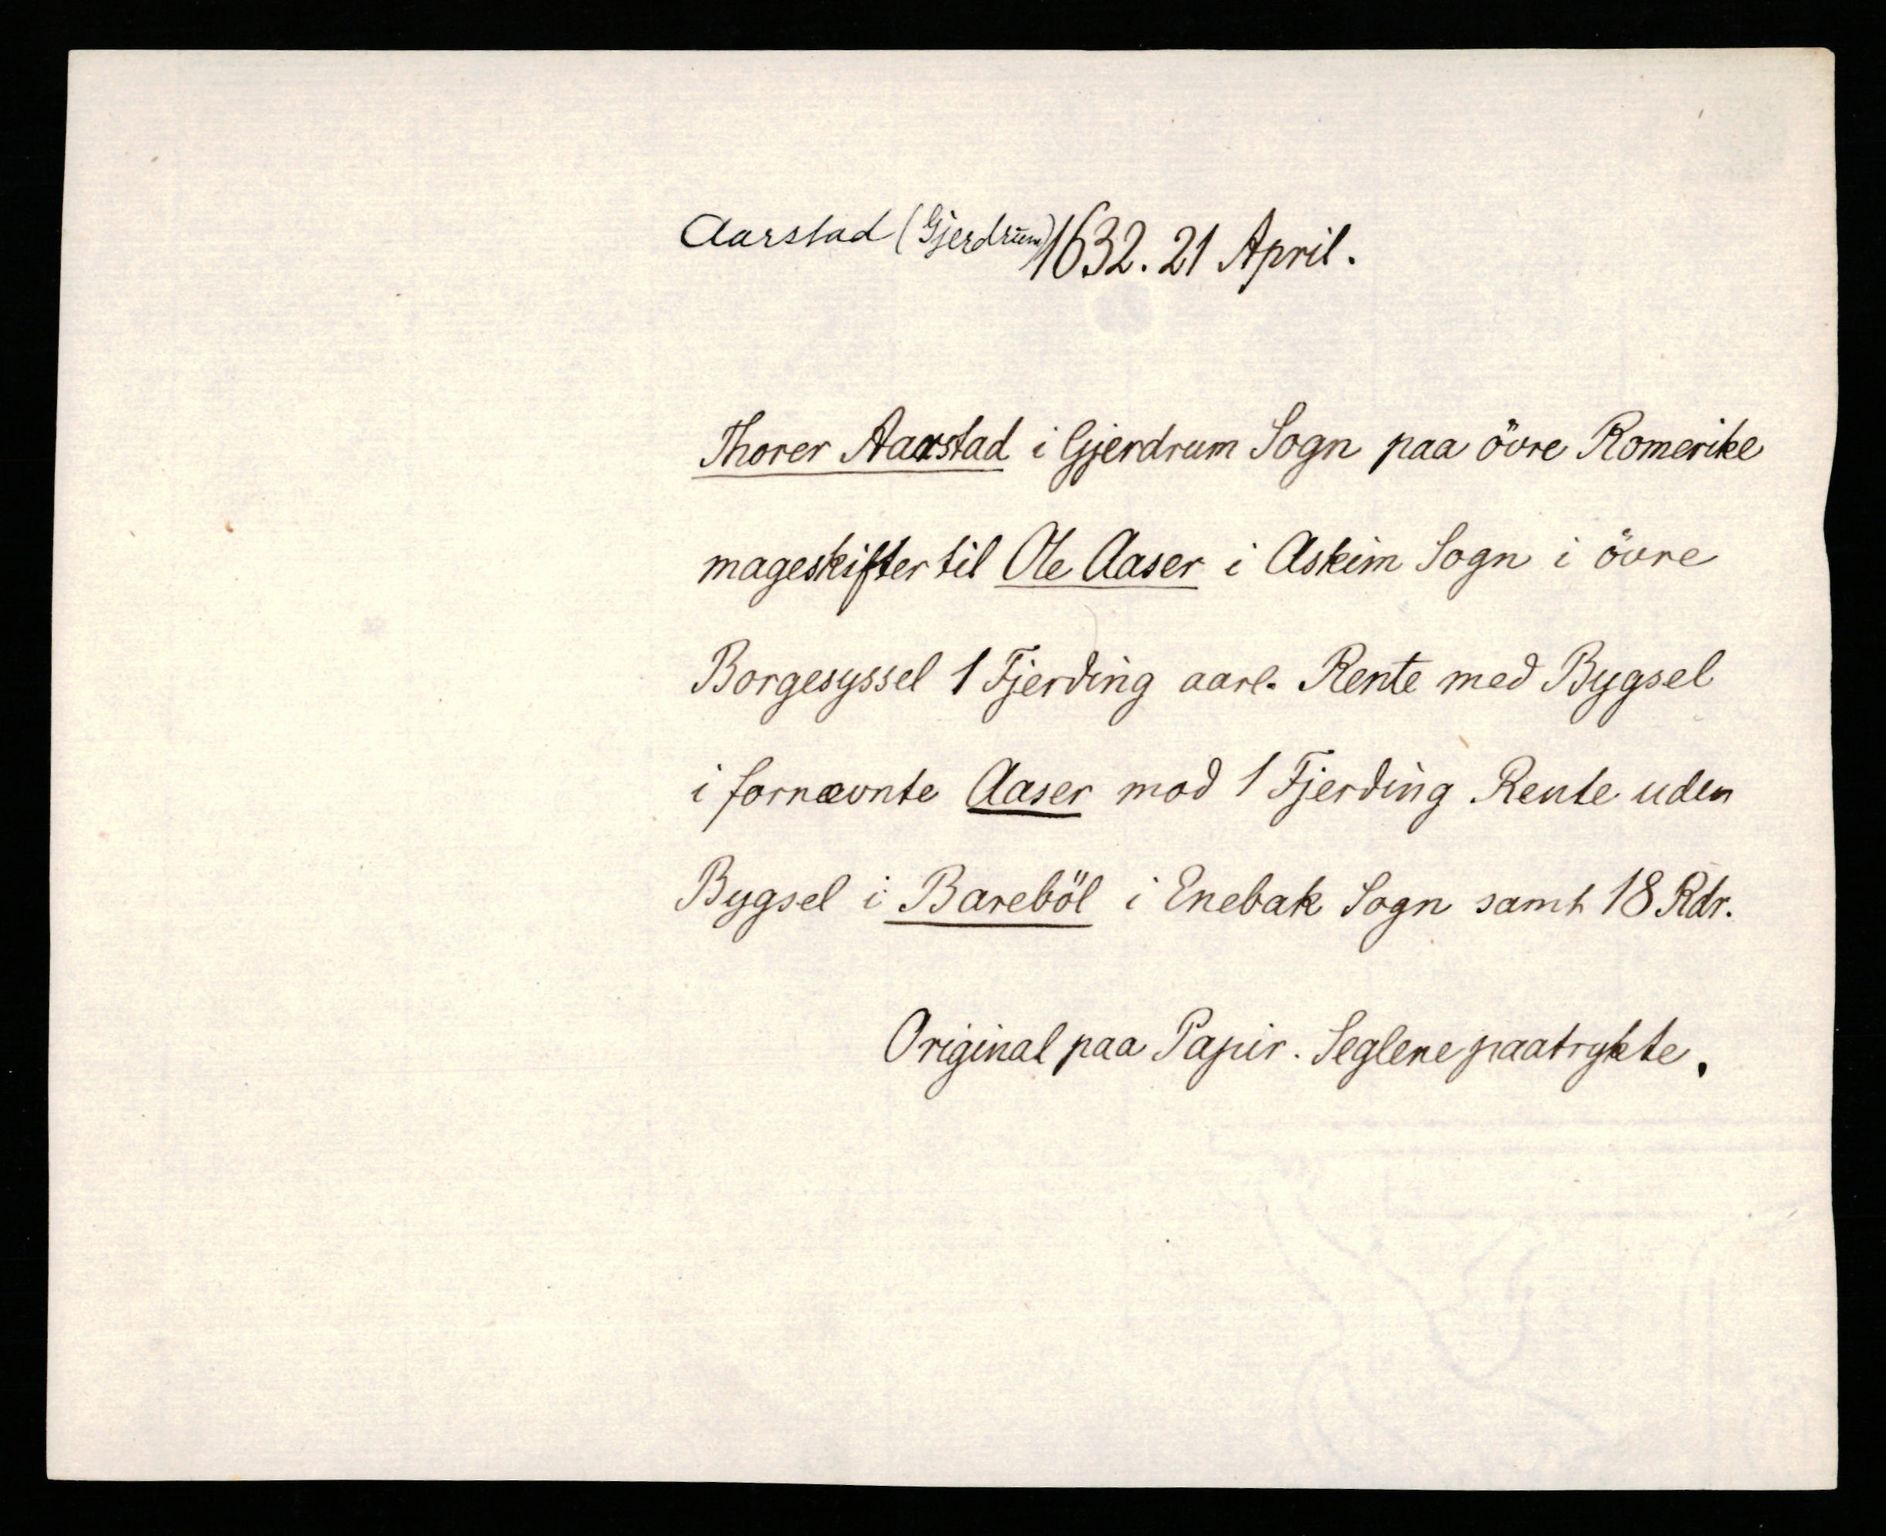 Aarstad (Gjerdrum) 1632. 21 April.
Thorer Aarstad i Gjerdrum Sogn paa övre Romerike
mageskifter til Ole Aaser i Askim Sogn i övre
Borgesyssel 1 Fjerding aarl. Rente med Bygsel
i fornævnte Aaser mod 1 Fjerding Rente uden
Bygsel i Bareböl i Enebak Sogn samt 18 Rdr.
Original paa Papir. Seglene paatrykte.